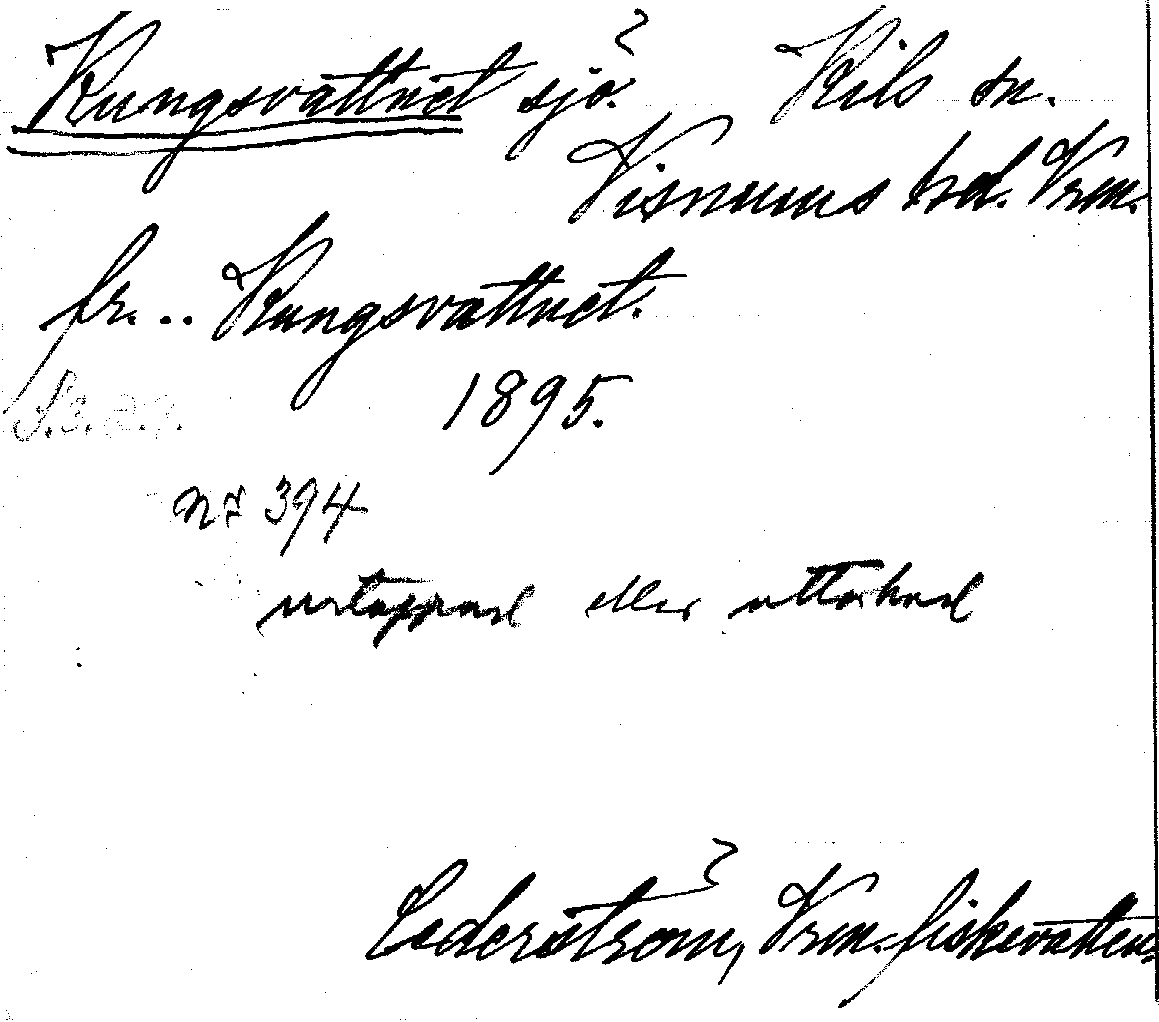 Kungsvattnet sjö. Kils sn.
Visnums hd. Vrm.
fr. .. Kungsvattnet.
1895.
S. 3. 29.
nr 394
urtappad eller uttorkad
Cederström, Vrm. fiskevatten